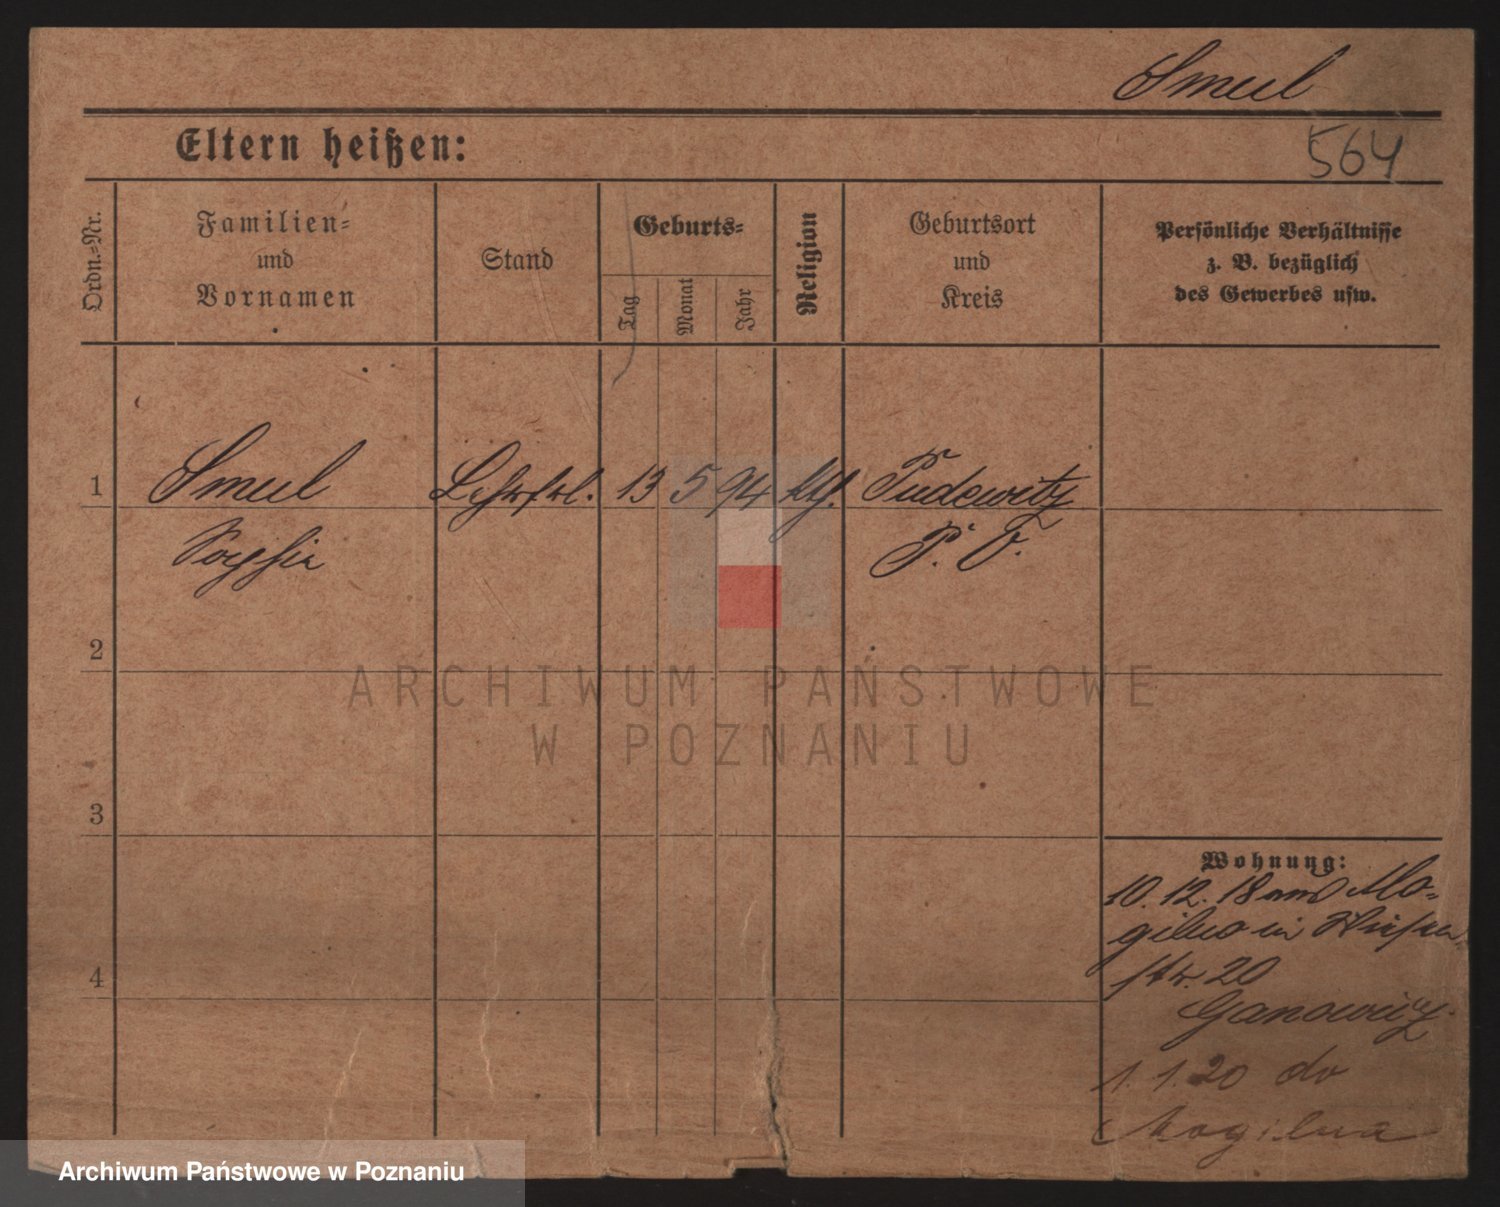 Smul
564
Eltern heißen:
Ordn.-Nr.
Familien-
und
Vornamen
Stand
Geburts-
Tag
Monat
Jahr
Religion
Geburtsort
und
Kreis
Persönliche Verhältnisse
z. B. bezüglich
des Gewerbes usw.
1
Smul
Lehrfrl.
13
5
94
Pudewitz
Sophia
P. O.
2
3
4
Wohnung:
10. 12. 18 Mo-
gilno in
str. 20
Ganowicz
1. 1. 20 do
Mogilna
ARCHIWUM PAŃSTWOWE
W POZNANIU
Archiwum Państwowe w Poznaniu